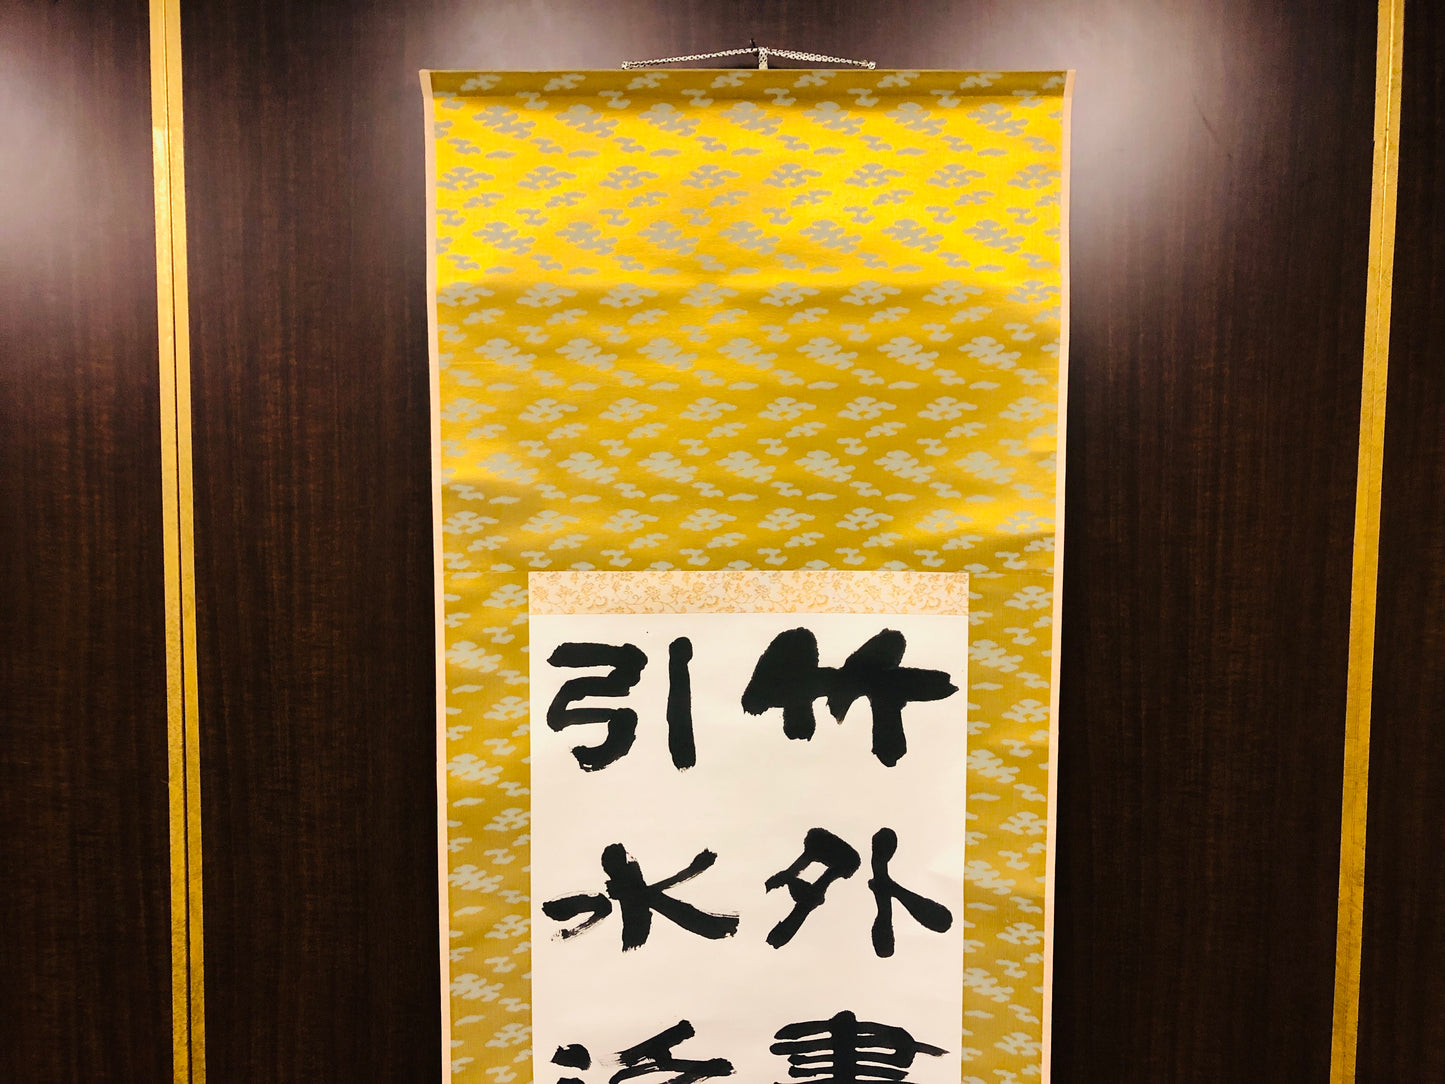 竹外書
引水